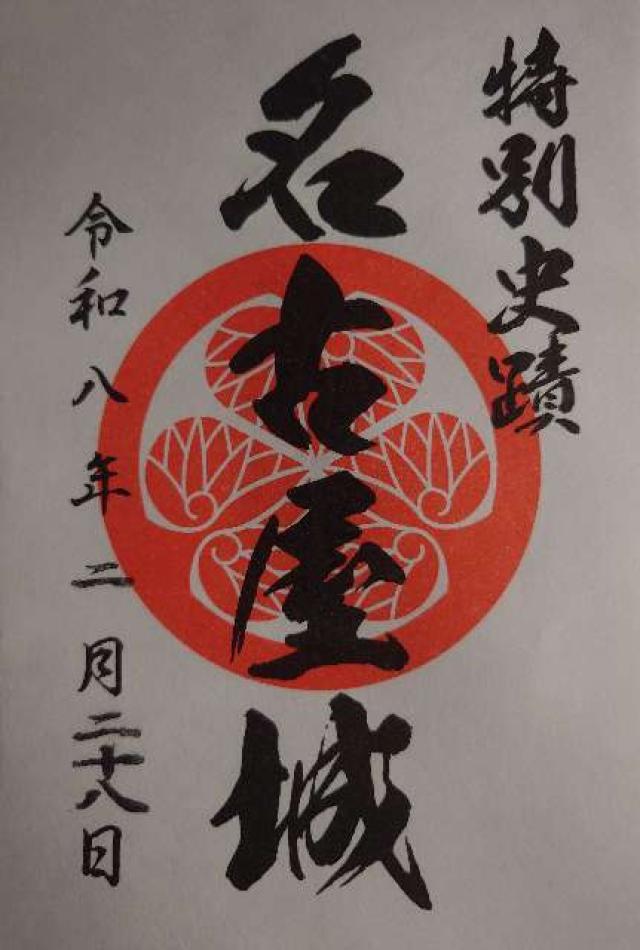 特別史蹟
名古屋城
令和八年二月二十八日